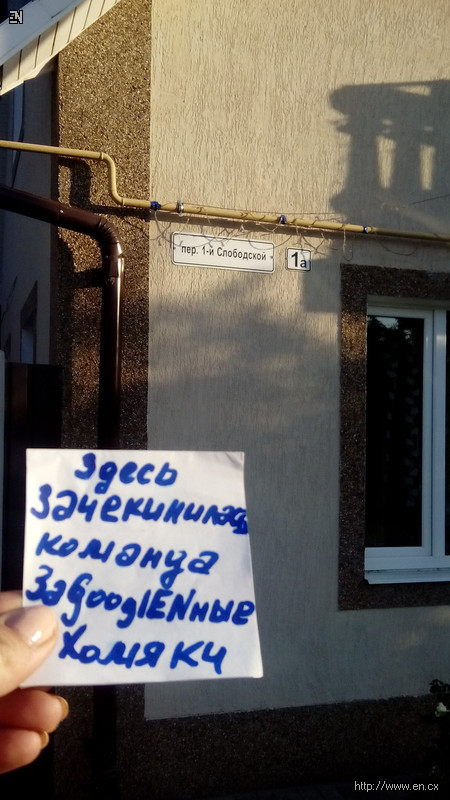 EN
пер. 1-й Слободской
1а
Здесь
Зачекинилась
команда
ЗаGооglENные
Хомяки
http://www.en.cx